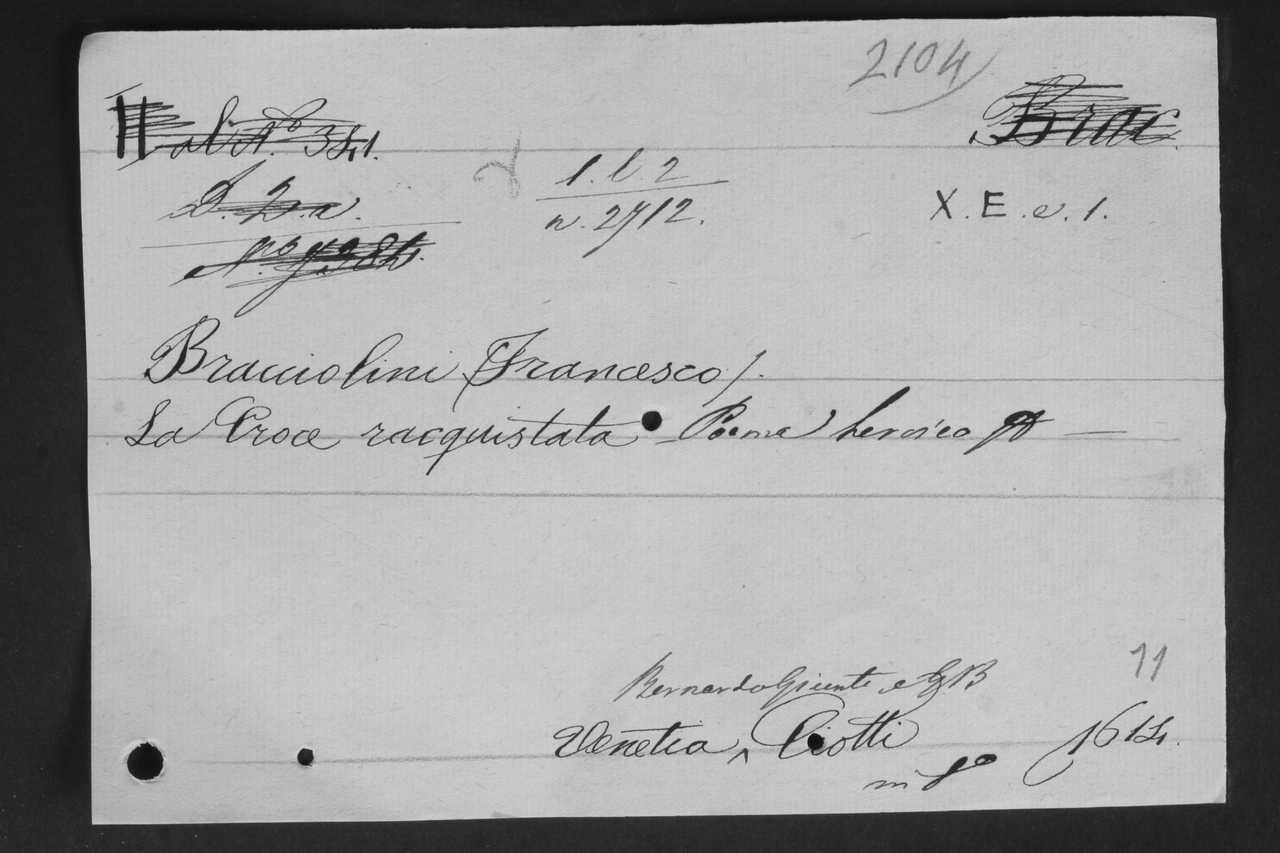 2104
Brac.
al. N.º 341.
2
1. b. 2
D. 2. a.
n. 2712.
X. E. e. 1.
Bracciolini (Francesco).
La Croce racquistata - Poema heroico —
11
Bernardo Giunti e GB
Venetia, Ciotti 1614.
in 8º